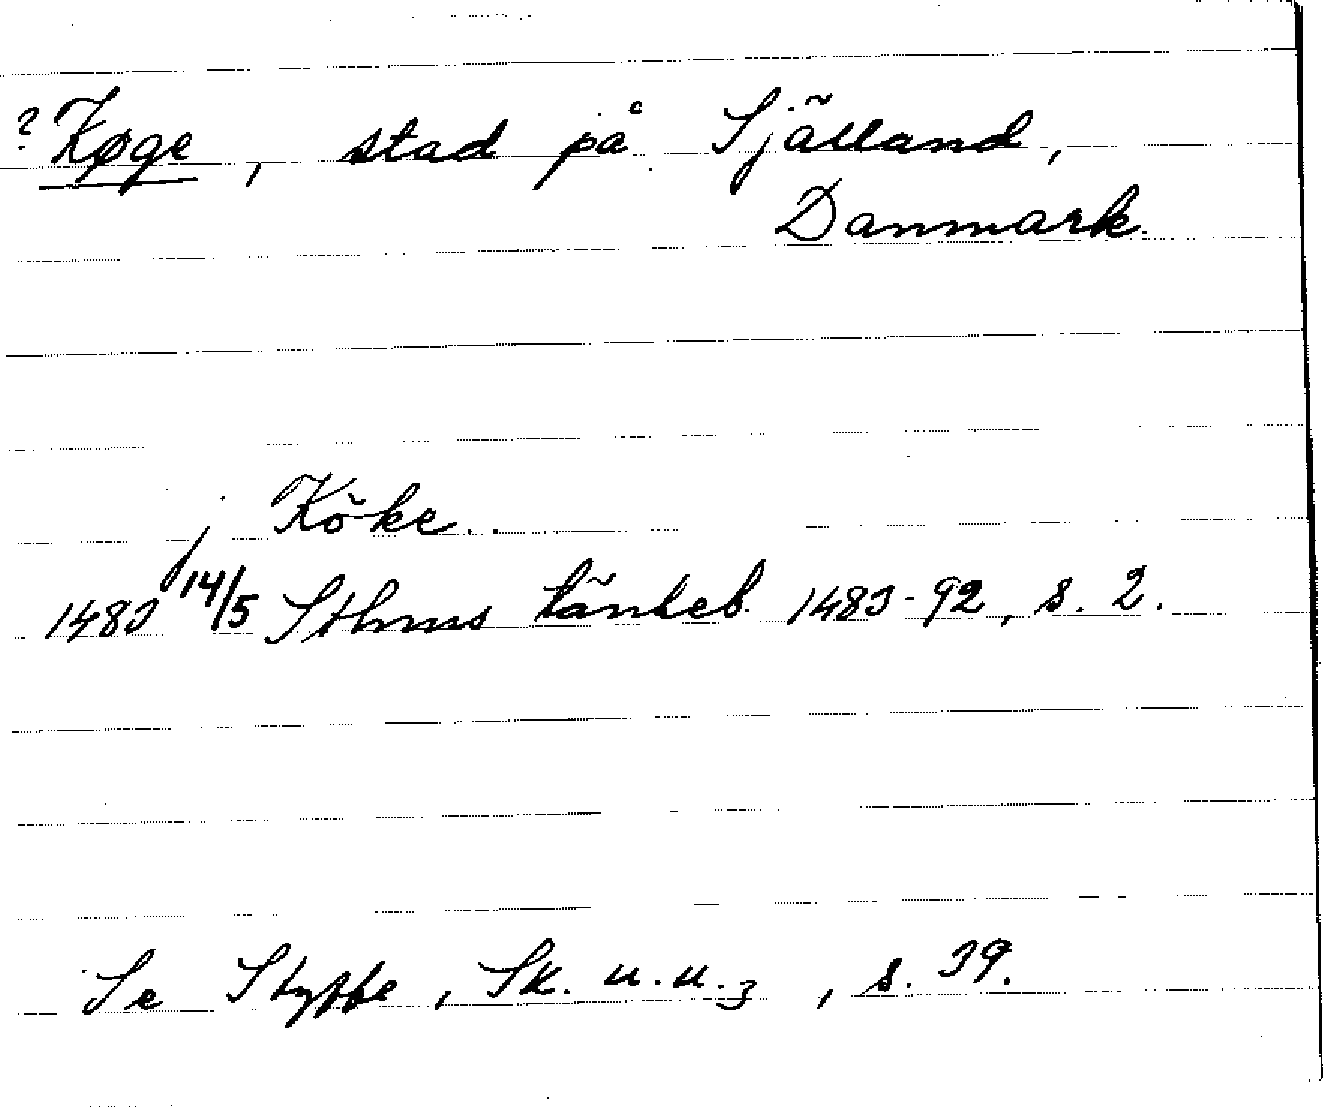 ? Køge, stad på Själland,
Danmark.
j Köke..
1483 14/5 Sthms tänkeb. 1483-92, s. 2.
Se Styffe, Sk. u. u. 3, s. 39.